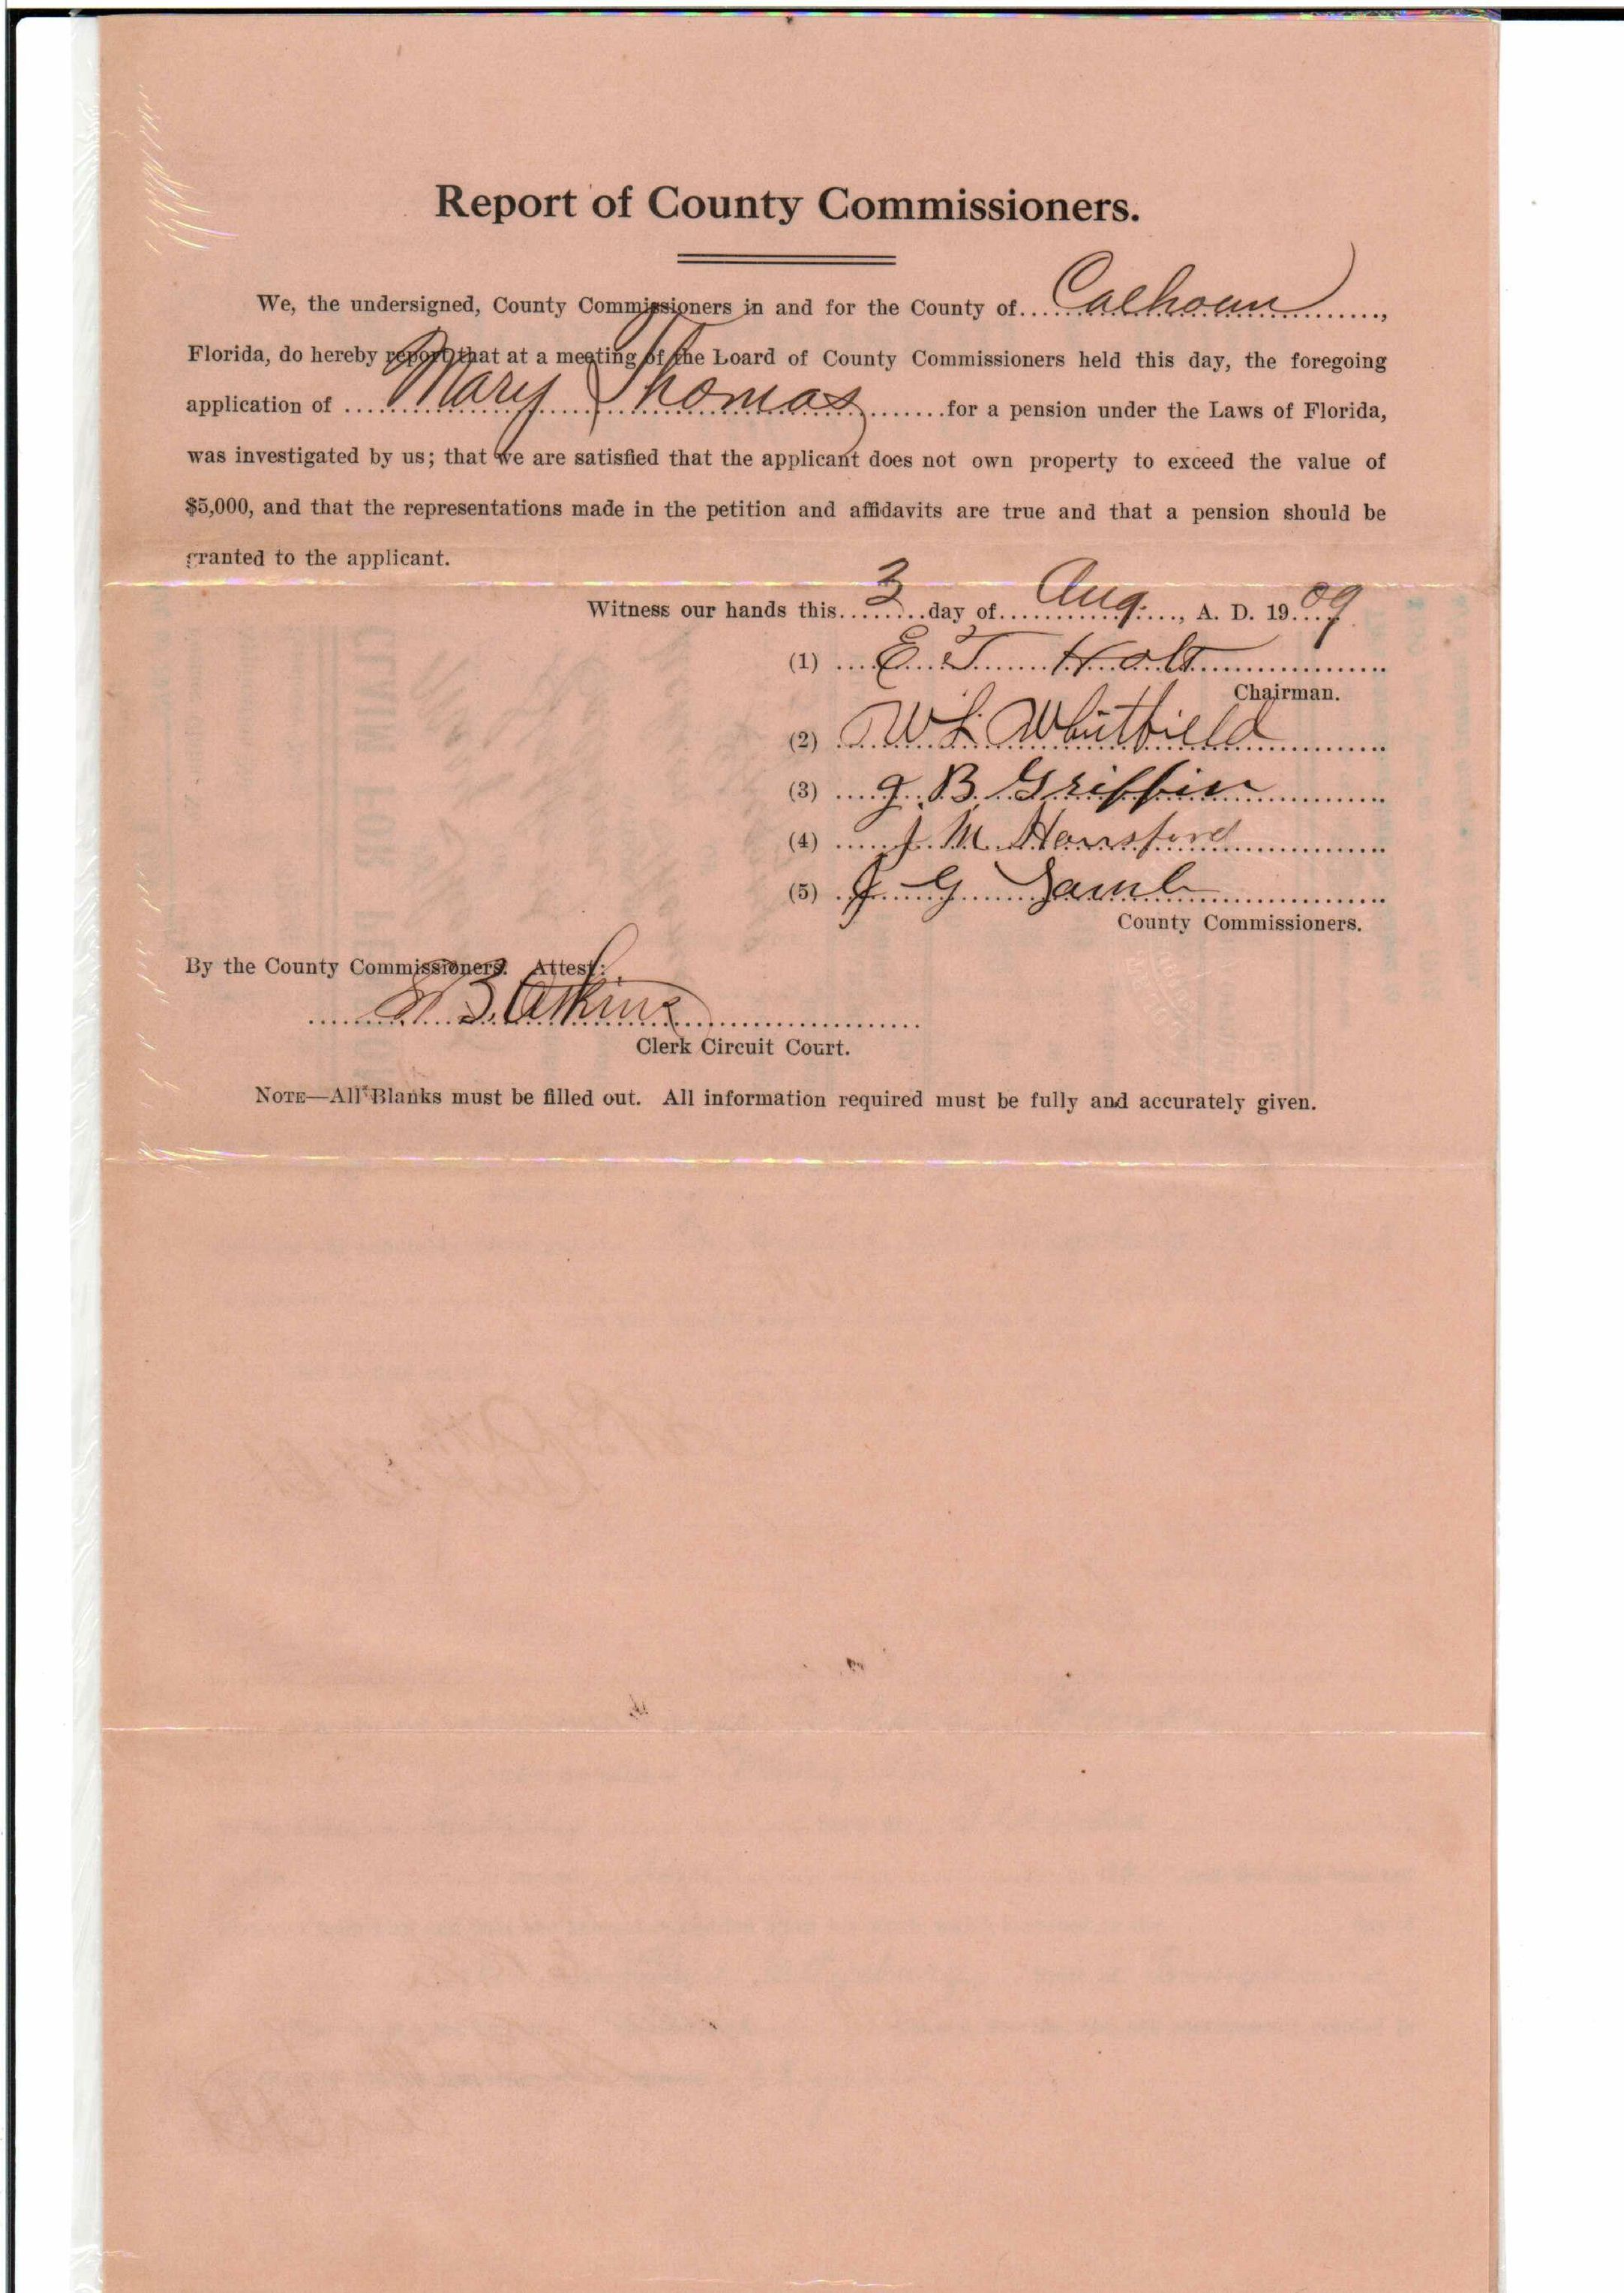 Report of County Commissioners.
We, the undersigned, County Commissioners in and for the County of Calhoun,
Florida, do hereby report that at a meeting of the Loard of County Commissioners held this day, the foregoing
application of Mary Thomas for a pension under the Laws of Florida,
was investigated by us; that we are satisfied that the applicant does not own property to exceed the value of
$5,000, and that the representations made in the petition and affidavits are true and that a pension should be
granted to the applicant.
Witness our hands this 3 day of Aug., A. D. 1909
(1) E. T. Holt
Chairman.
(2) W L Whitfield
(3) J. B. Griffin
(4) J. M. Hansford
(5) J. G. Lamb
County Commissioners.
By the County Commissioners. Attest:
B. Atkins
Clerk Circuit Court.
NOTE—All Blanks must be filled out. All information required must be fully and accurately given.